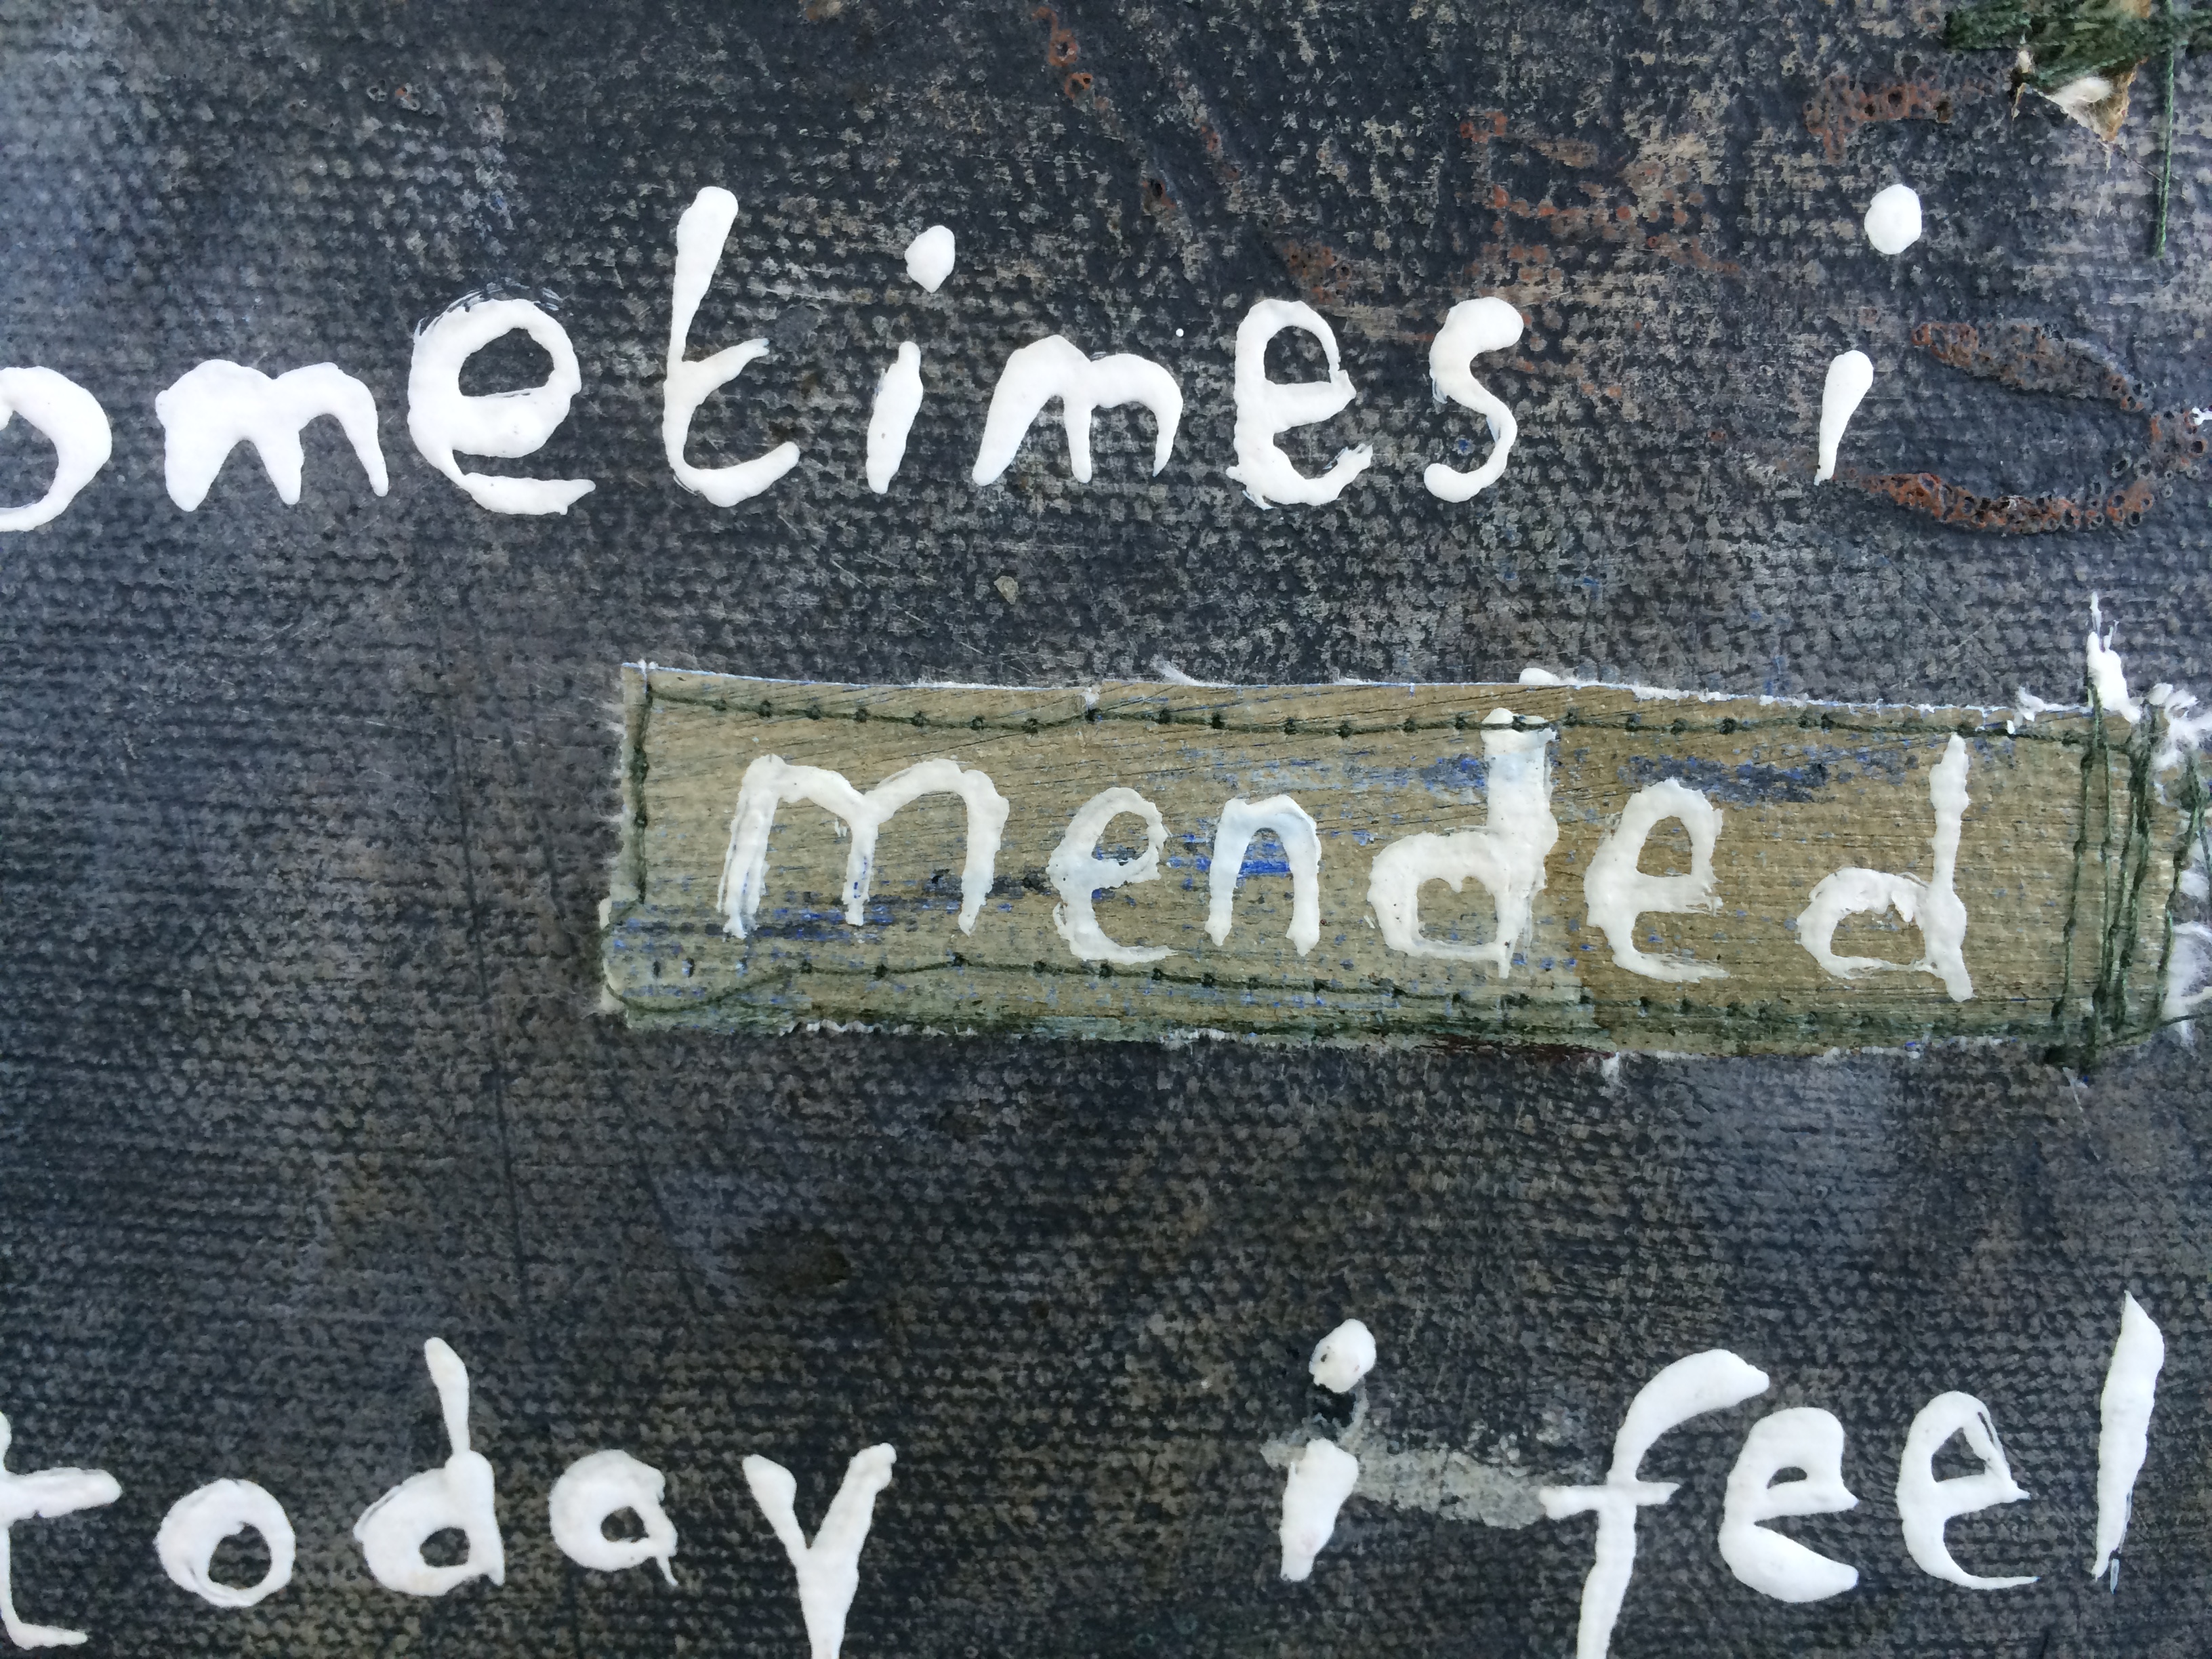 ometimes i
mended
today i feel